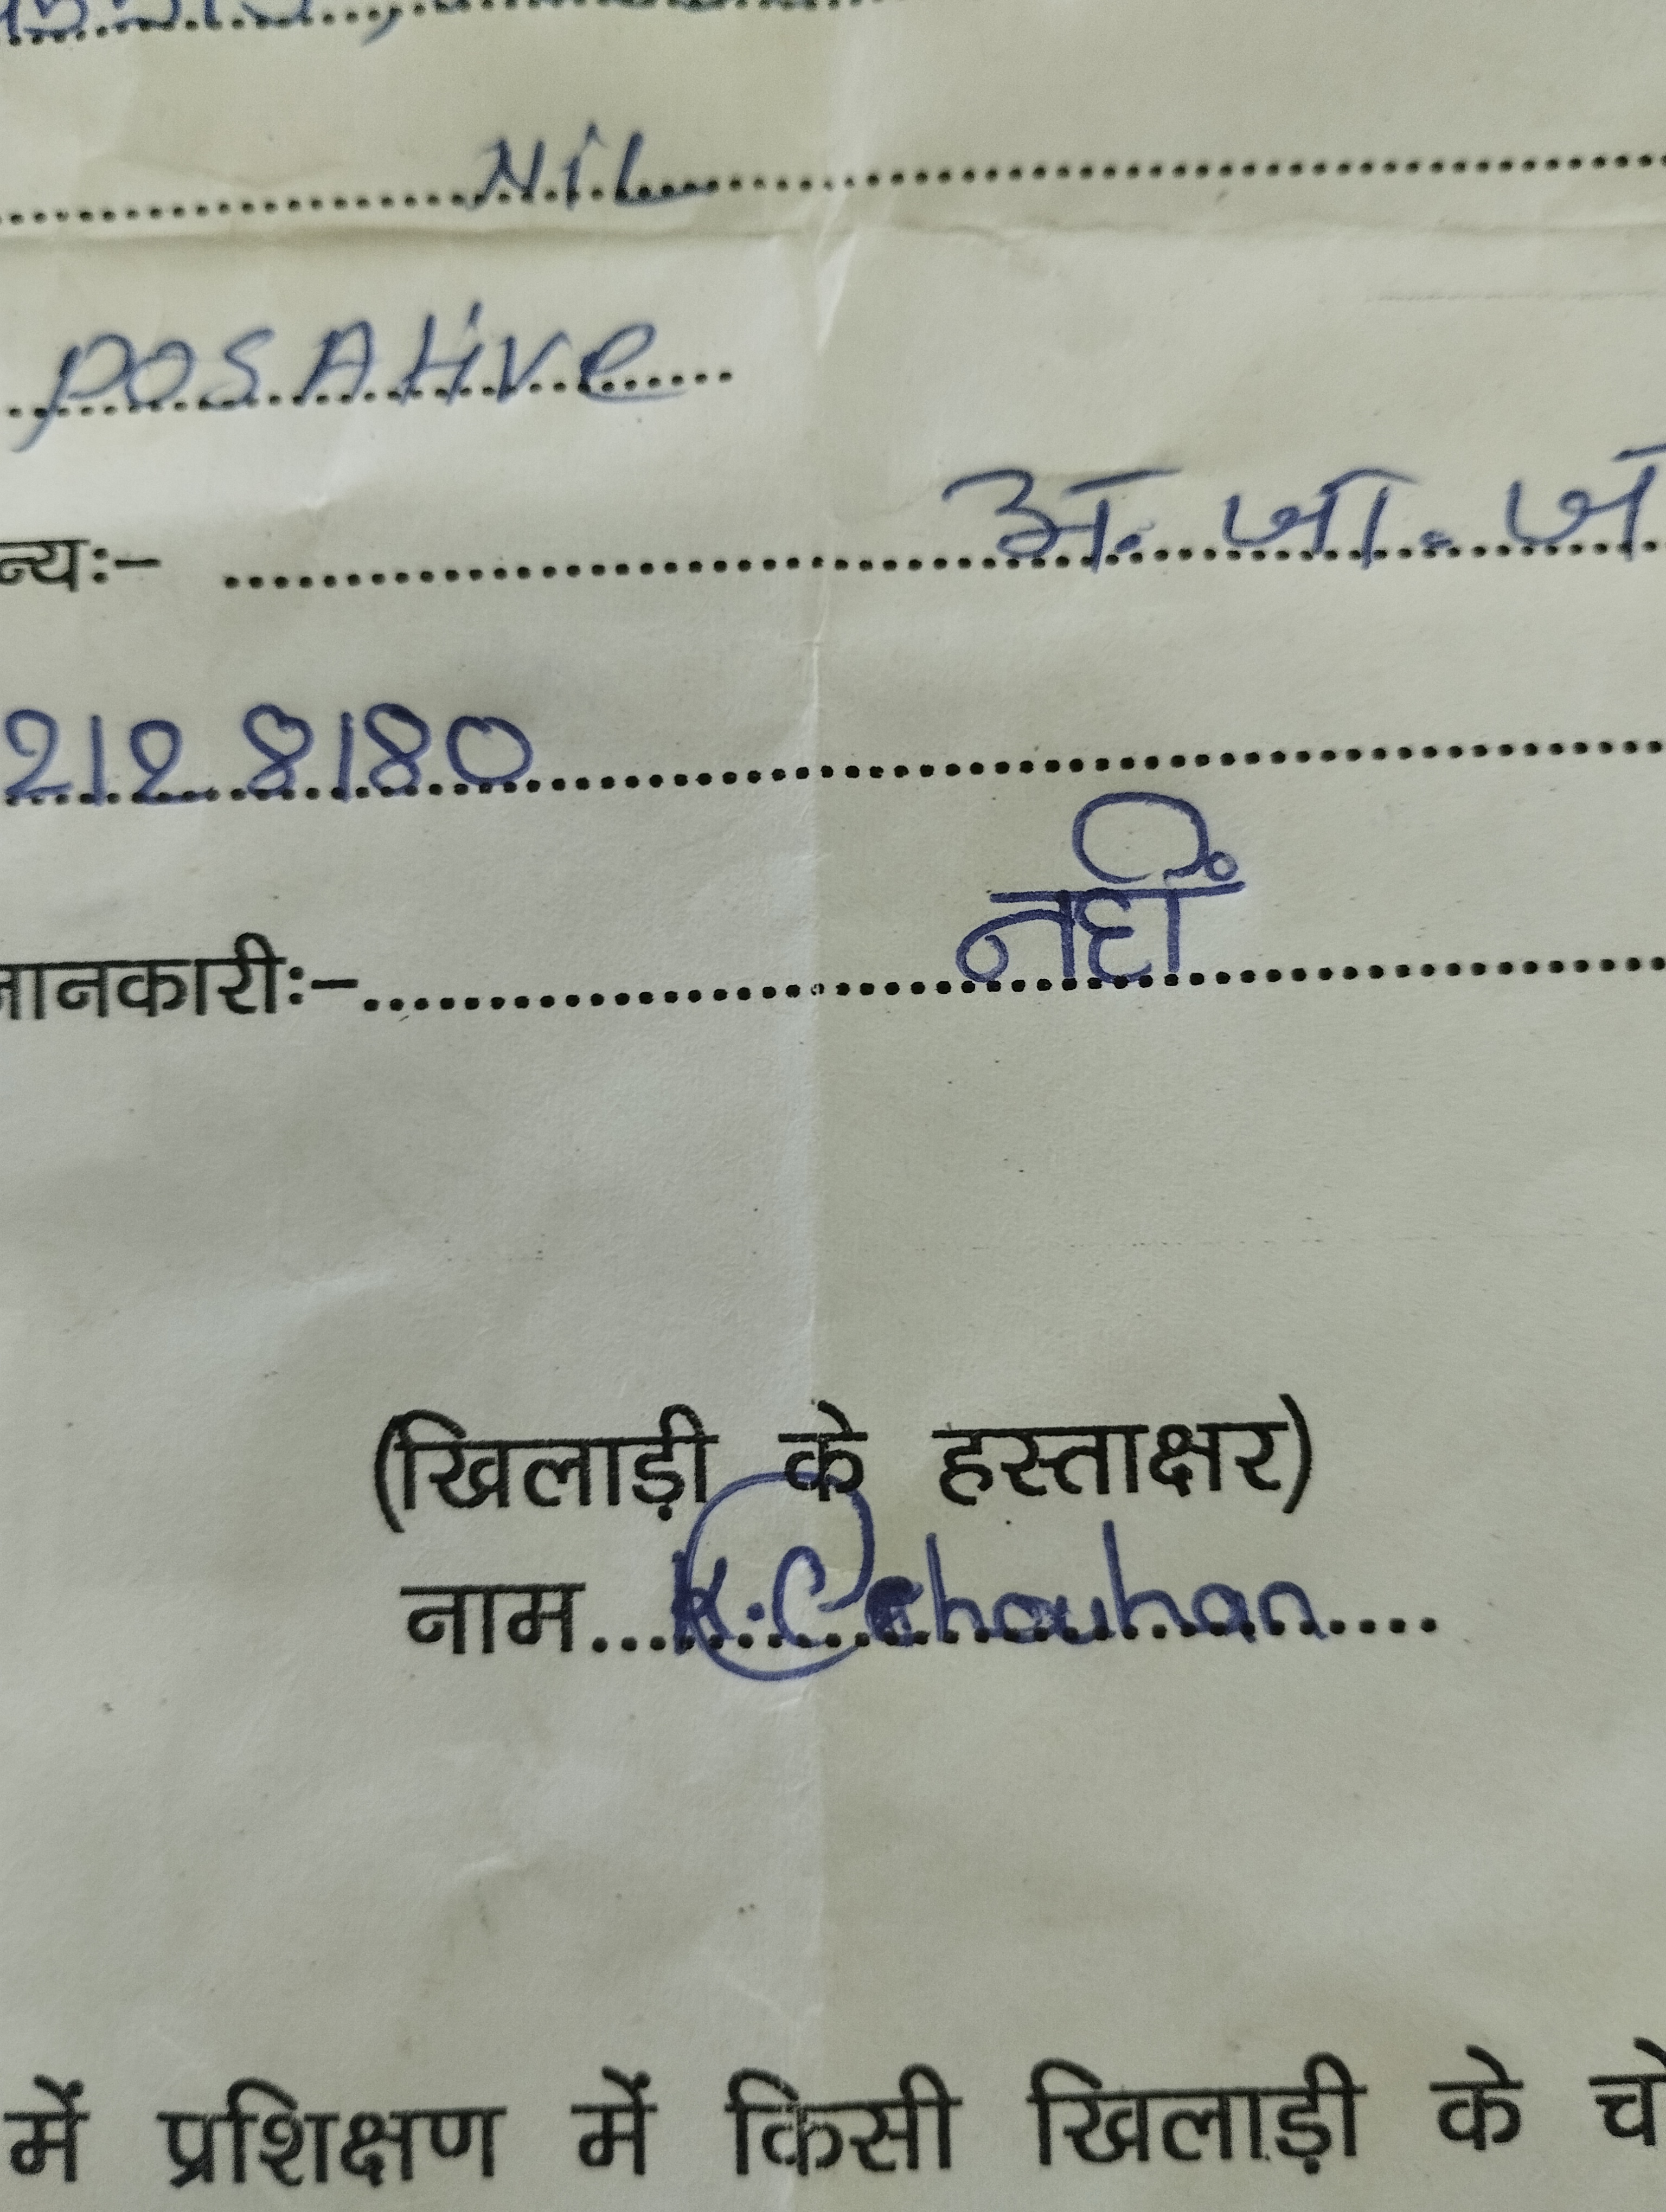 Nil
posAtive
न्यः- अ. जा. ज
2128180
जानकारीः- नहीं
(खिलाड़ी के हस्ताक्षर)
नाम...K.C chouhan....
में प्रशिक्षण में किसी खिलाड़ी के